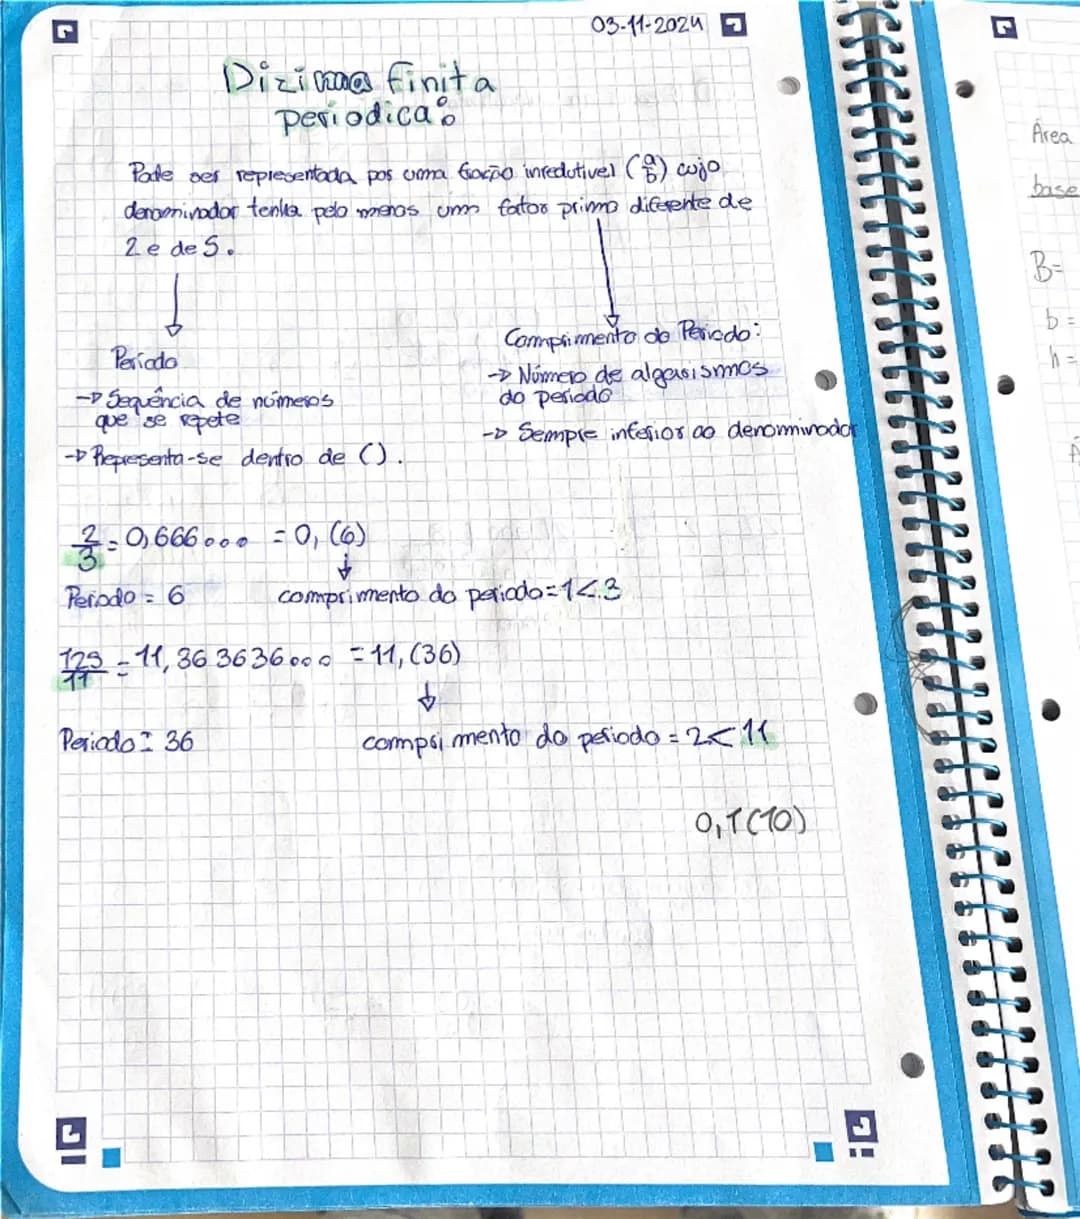 03-11-2024
Dizima finita
periodica:
Pode ser representada por uma fração irredutivel (a/b) cujo
denominador tenha pelo menos um fator primo diferente de
2 e de 5.
Periodo
→ Sequência de números
que se repete
→ Representa-se dentro de ().
Comprimento do Periodo:
→ Número de algarismos
do periodo
→ Sempre inferior ao denominador
2/3 = 0,666... = 0,(6)
Periodo = 6
comprimento do periodo = 1 < 3
125/11 = 11,363636... = 11,(36)
Periodo = 36
comprimento do periodo = 2 < 11
0,1(10)
Área
base
B=
b=
h=